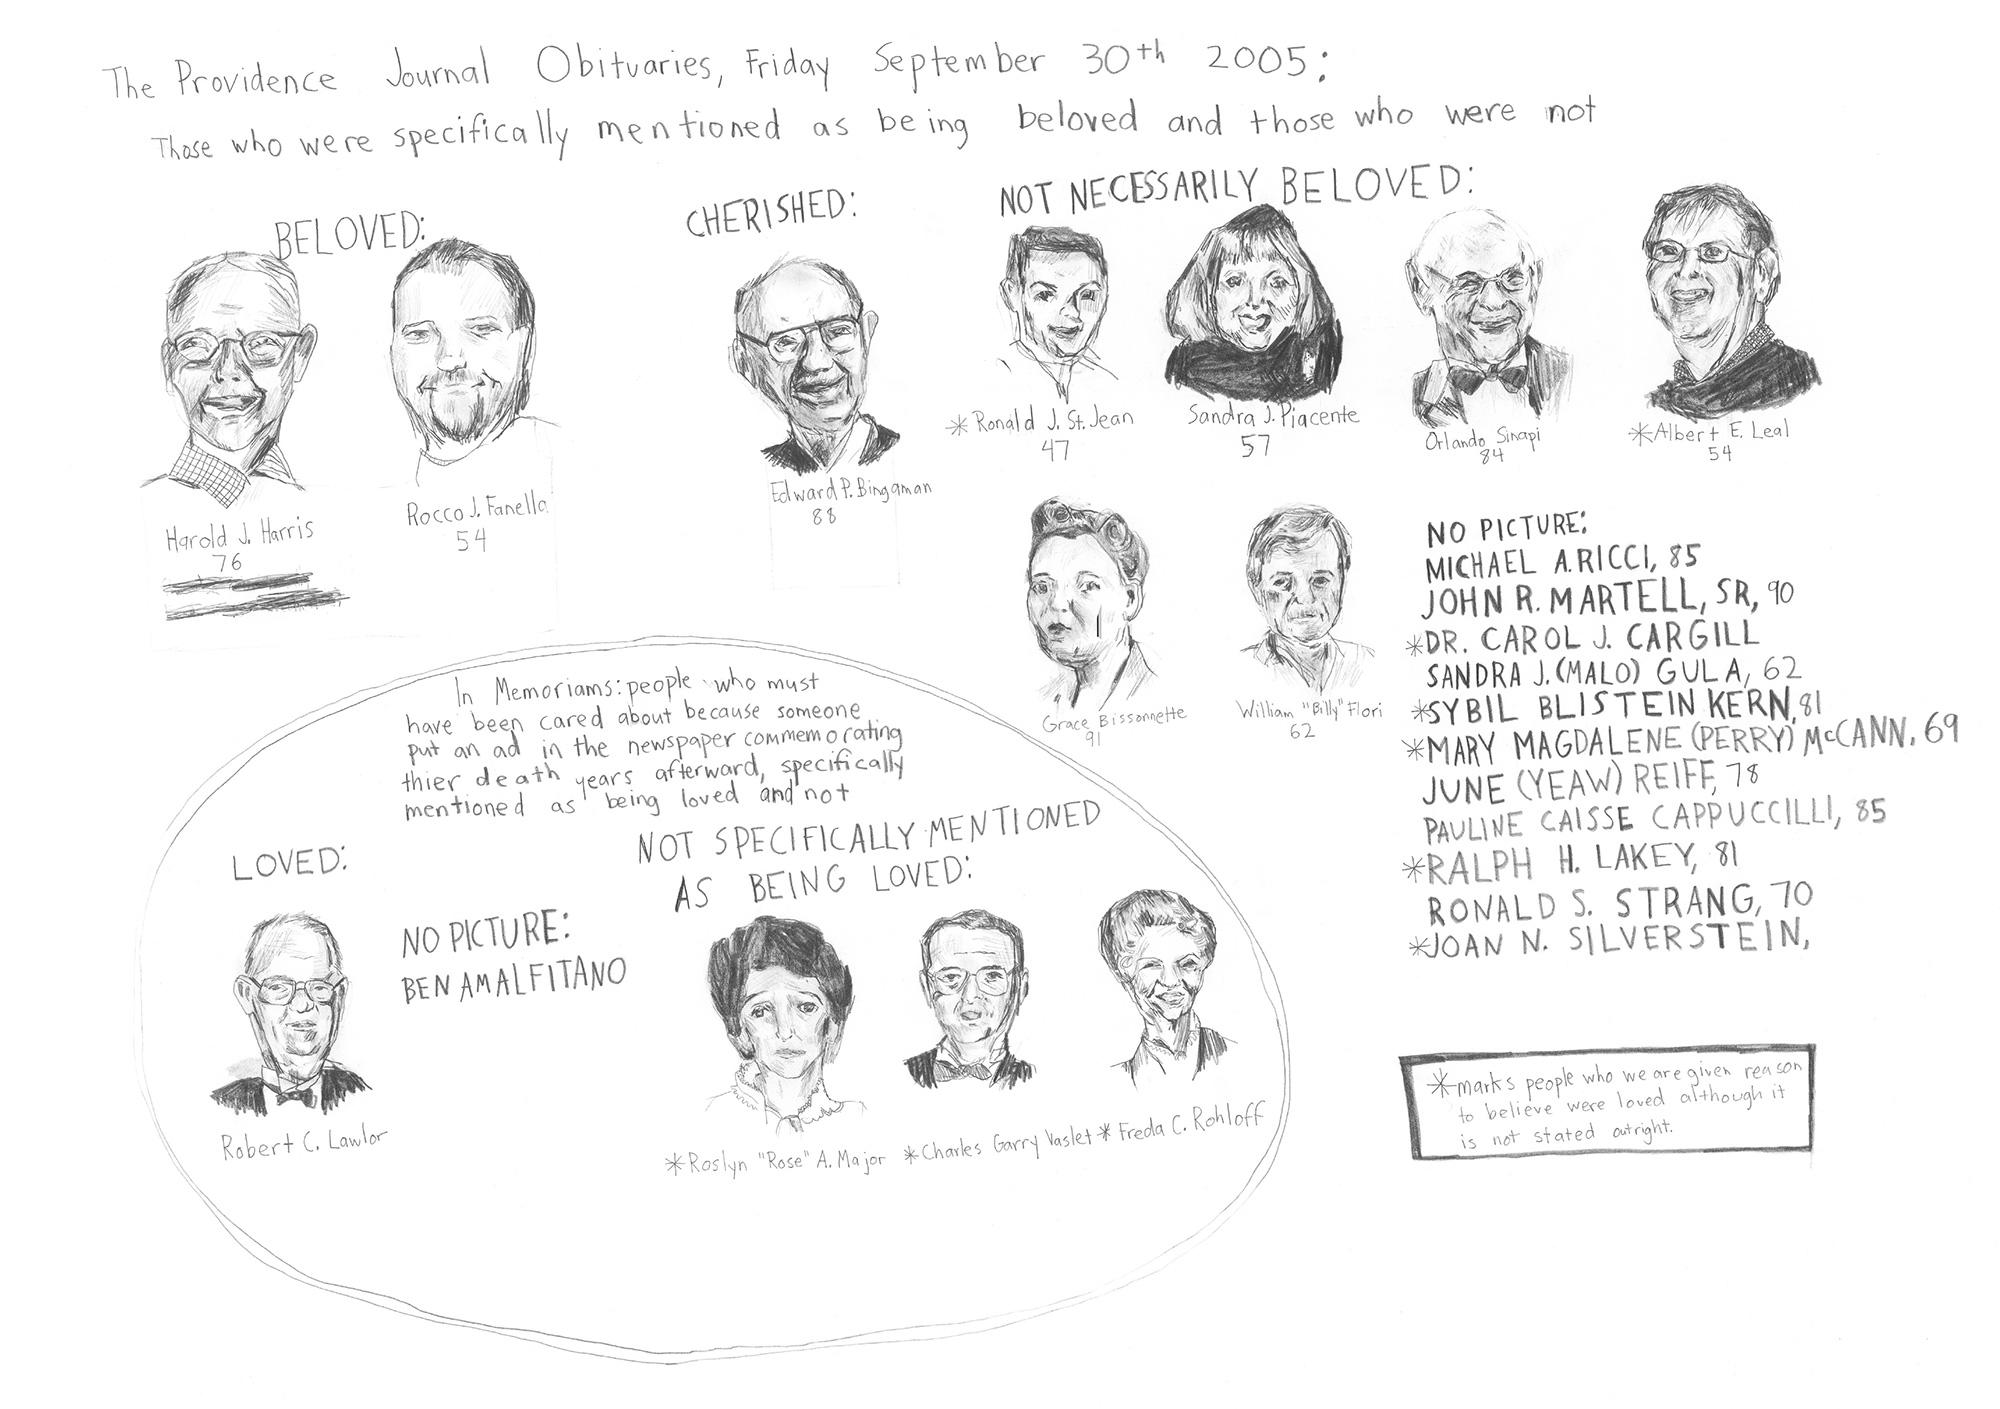 The Providence Journal Obituaries, Friday September 30th 2005:
Those who were specifically mentioned as being beloved and those who were not
BELOVED:
Harold J. Harris
76
Rocco J. Fanella
54
CHERISHED:
Edward P. Bingaman
88
NOT NECESSARILY BELOVED:
*Ronald J. St. Jean
47
Sandra J. Piacente
57
Orlando Sinapi
84
*Albert E. Leal
54
Grace Bissonnette
91
William "Billy" Flori
62
NO PICTURE:
MICHAEL A. RICCI, 85
JOHN R. MARTELL, SR, 90
*DR. CAROL J. CARGILL
SANDRA J. (MALO) GULA, 62
*SYBIL BLISTEIN KERN, 81
*MARY MAGDALENE (PERRY) McCANN, 69
JUNE (YEAW) REIFF, 78
PAULINE CAISSE CAPPUCCILLI, 85
*RALPH H. LAKEY, 81
RONALD S. STRANG, 70
*JOAN N. SILVERSTEIN,
In Memoriams: people who must
have been cared about because someone
put an ad in the newspaper commemorating
thier death years afterward, specifically
mentioned as being loved and not
LOVED:
Robert C. Lawlor
NO PICTURE:
BEN AMALFITANO
NOT SPECIFICALLY MENTIONED
AS BEING LOVED:
*Roslyn "Rose" A. Major
*Charles Garry Vaslet
*Freda C. Rohloff
*marks people who we are given reason
to believe were loved although it
is not stated outright.